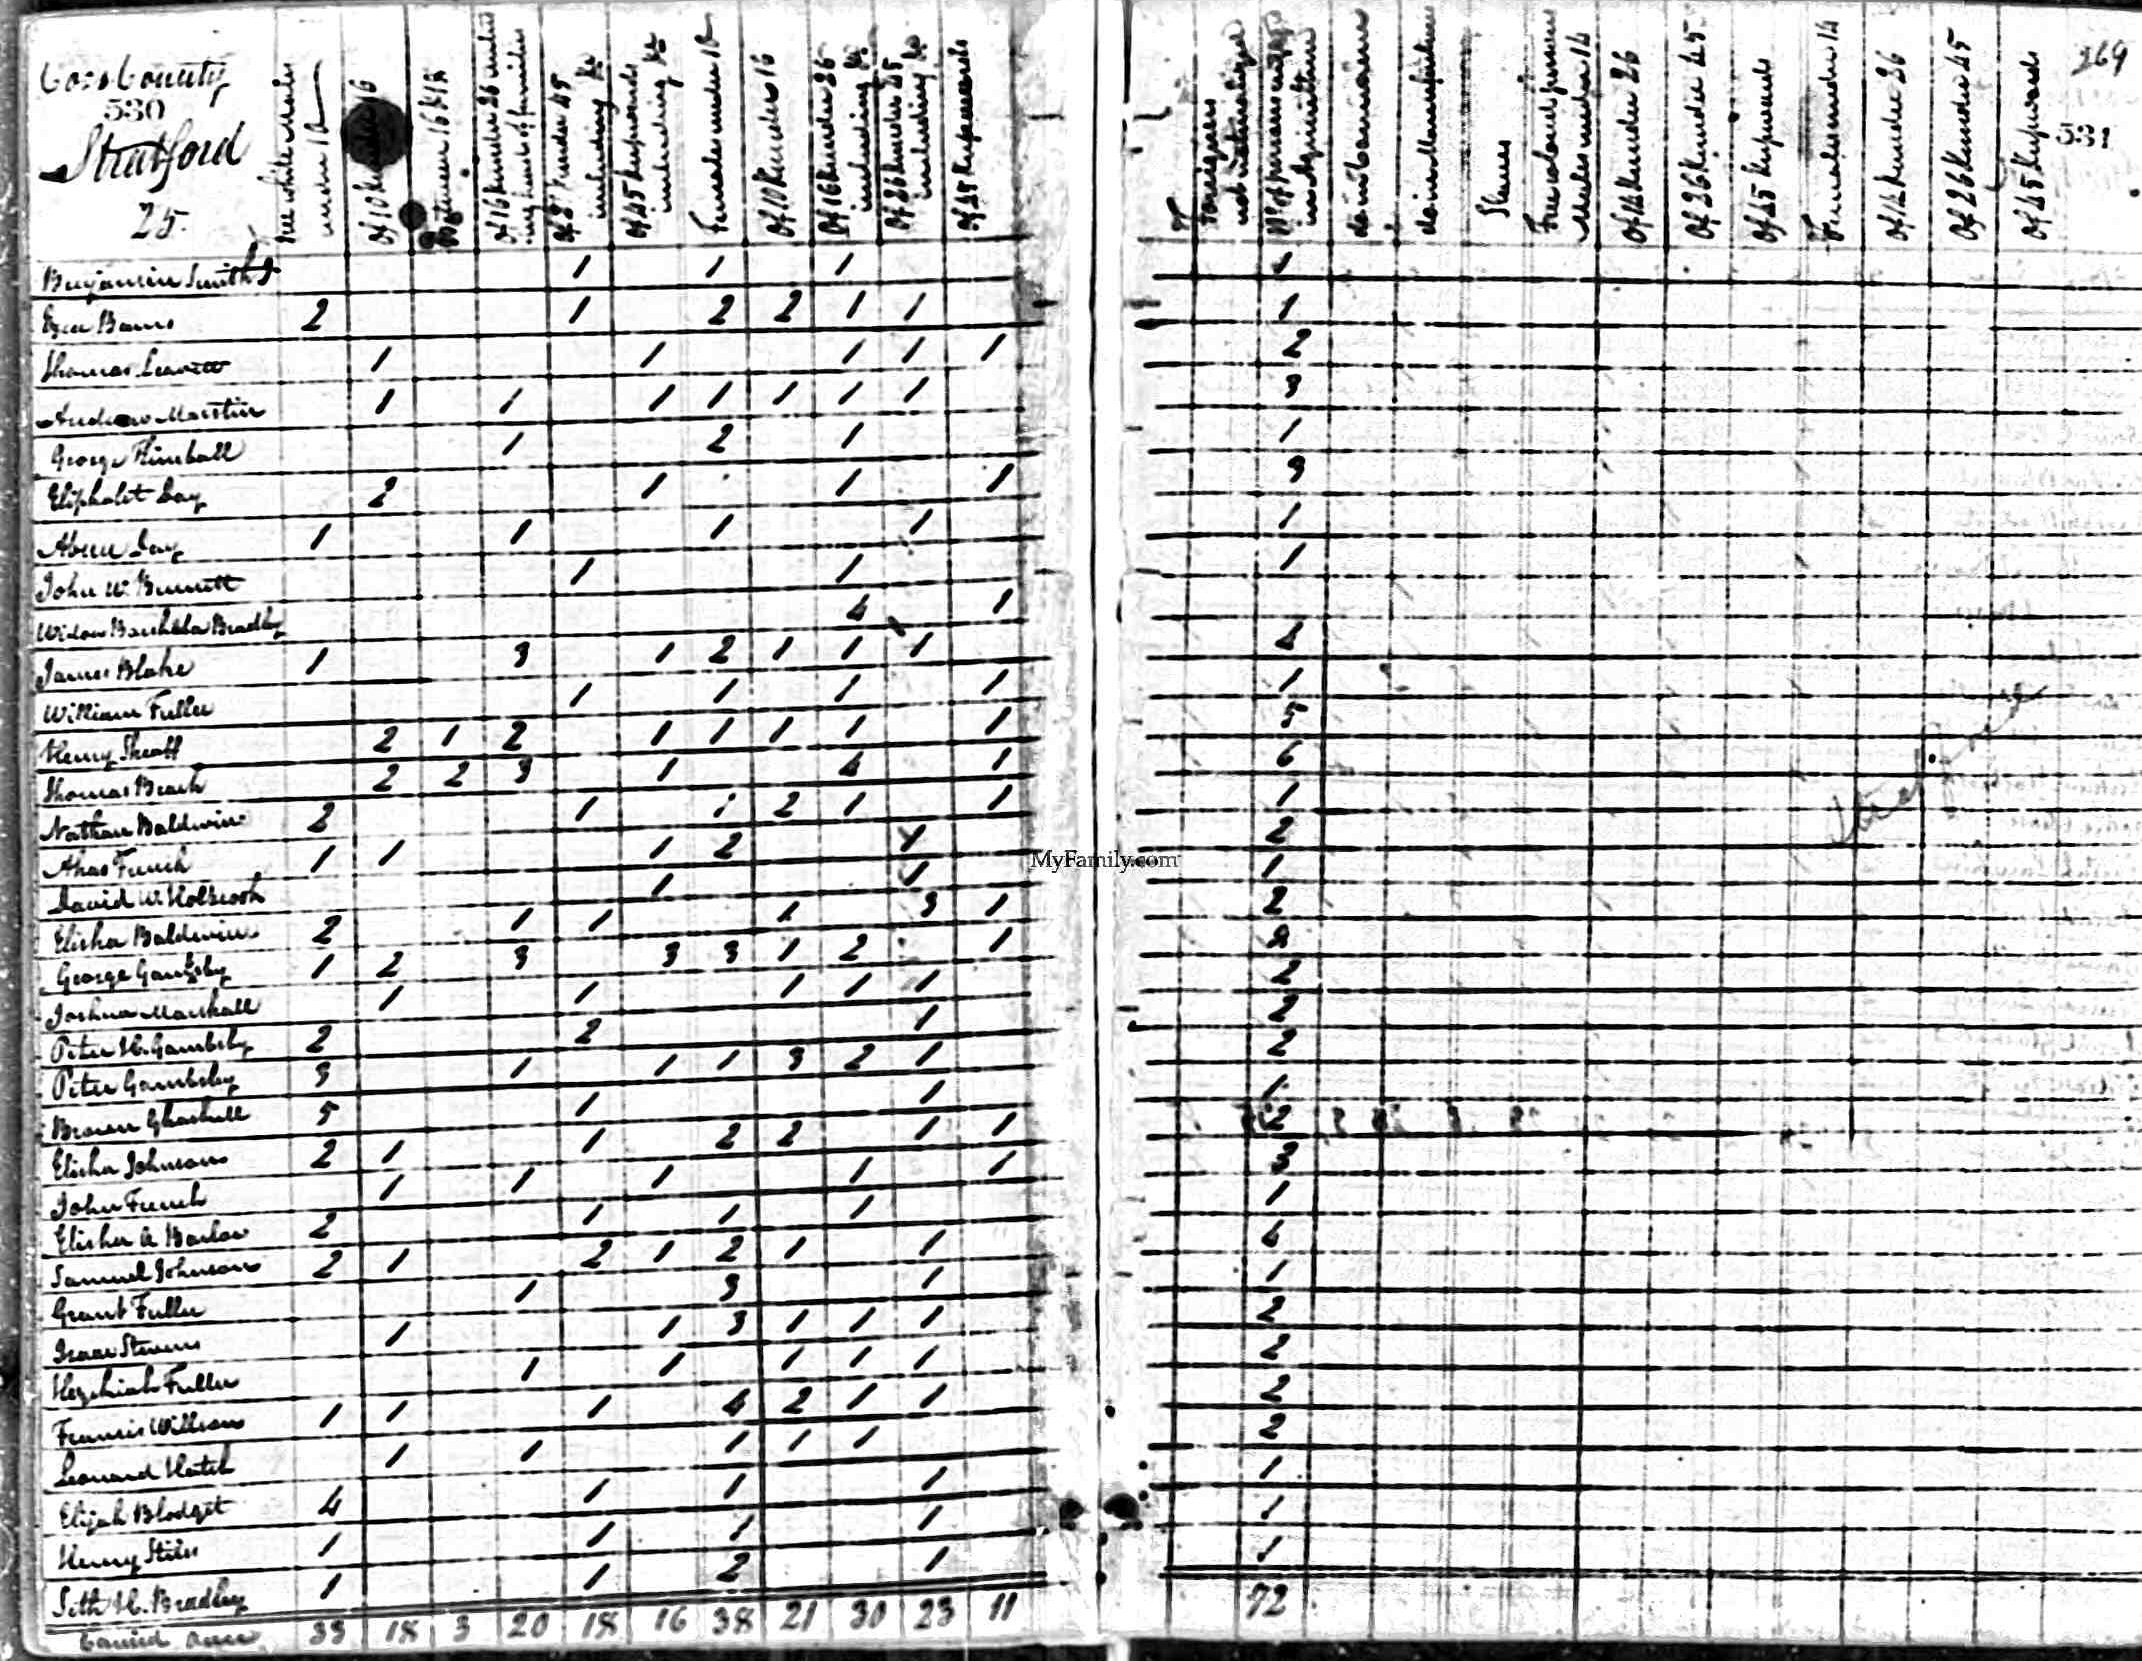 Coos County
530
Stratford
25.
Free white Males under 10
Of 10 & under 16
Between 16 & 18
Of 16 & under 26 including heads of families
Of 26 & under 45 including &c
Of 45 & upwards including &c
Females under 10
Of 10 & under 16
Of 16 & under 26 including &c
Of 26 & under 45 including &c
Of 45 & upwards
Foreigners not naturalized
No of persons engaged in Agriculture
do in Commerce
do in Manufactures
Slaves
Free colored persons Males under 14
Of 14 & under 26
Of 26 & under 45
Of 45 & upwards
Females under 14
Of 14 & under 26
Of 26 & under 45
Of 45 & upwards
269
531
Benjamin Smith 1 1 1 1
Barns 2 1 2 2 1 1 1
Thomas Leavitt 1 1 1 1 1 2
Andrew Marstin 1 1 1 1 1 1 1 3
George Kimball 1 2 1 1
Eliphalet Day 2 1 1 1 3
Abner Day 1 1 1 1 1
John W. Bennett 1 1 1
Widow Barsheba Bradley 4 1
James Blake 1 3 1 2 1 1 1 4
William Fuller 1 1 1 1 1
Henry Sheaff 2 1 2 1 1 1 1 1 5
Thomas Beach 2 2 3 1 4 1 6
Nathan Baldwin 2 1 1 2 1 1 1
Ahas French 1 1 1 2 1 2
David W. Holbrook 1 1 1
Elisha Baldwin 2 1 1 1 3 1 2
George Gambsby 1 2 3 3 3 1 2 1
Joshua Marshall 1 1 1 1 1 2
Peter H. Gambsby 2 2 1 2
Peter Gambsby 3 1 1 1 3 2 1 2
Brown Ghaskell 5 1 1 1
Elisha Johnson 2 1 1 2 2 1 1 2
John French 1 1 1 1 1 3
Elisha A Barlow 2 1 1 1 1
Samuel Johnson 2 1 2 1 2 1 1 4
Grant Fuller 1 3 1 1
Isaac Stevens 1 1 3 1 1 1 2
Hezekiah Fuller 1 1 1 1 1 2
Francis Willson 1 1 1 4 2 1 1 2
Leonard Hatch 1 1 1 1 1 2
Elijah Blodget 4 1 1 1 1
Henry Stiles 1 1 1 1 1
Seth H. Bradley 1 1 2 1 1
Carried over 33 18 3 20 18 16 38 21 30 23 11 72
MyFamily.com